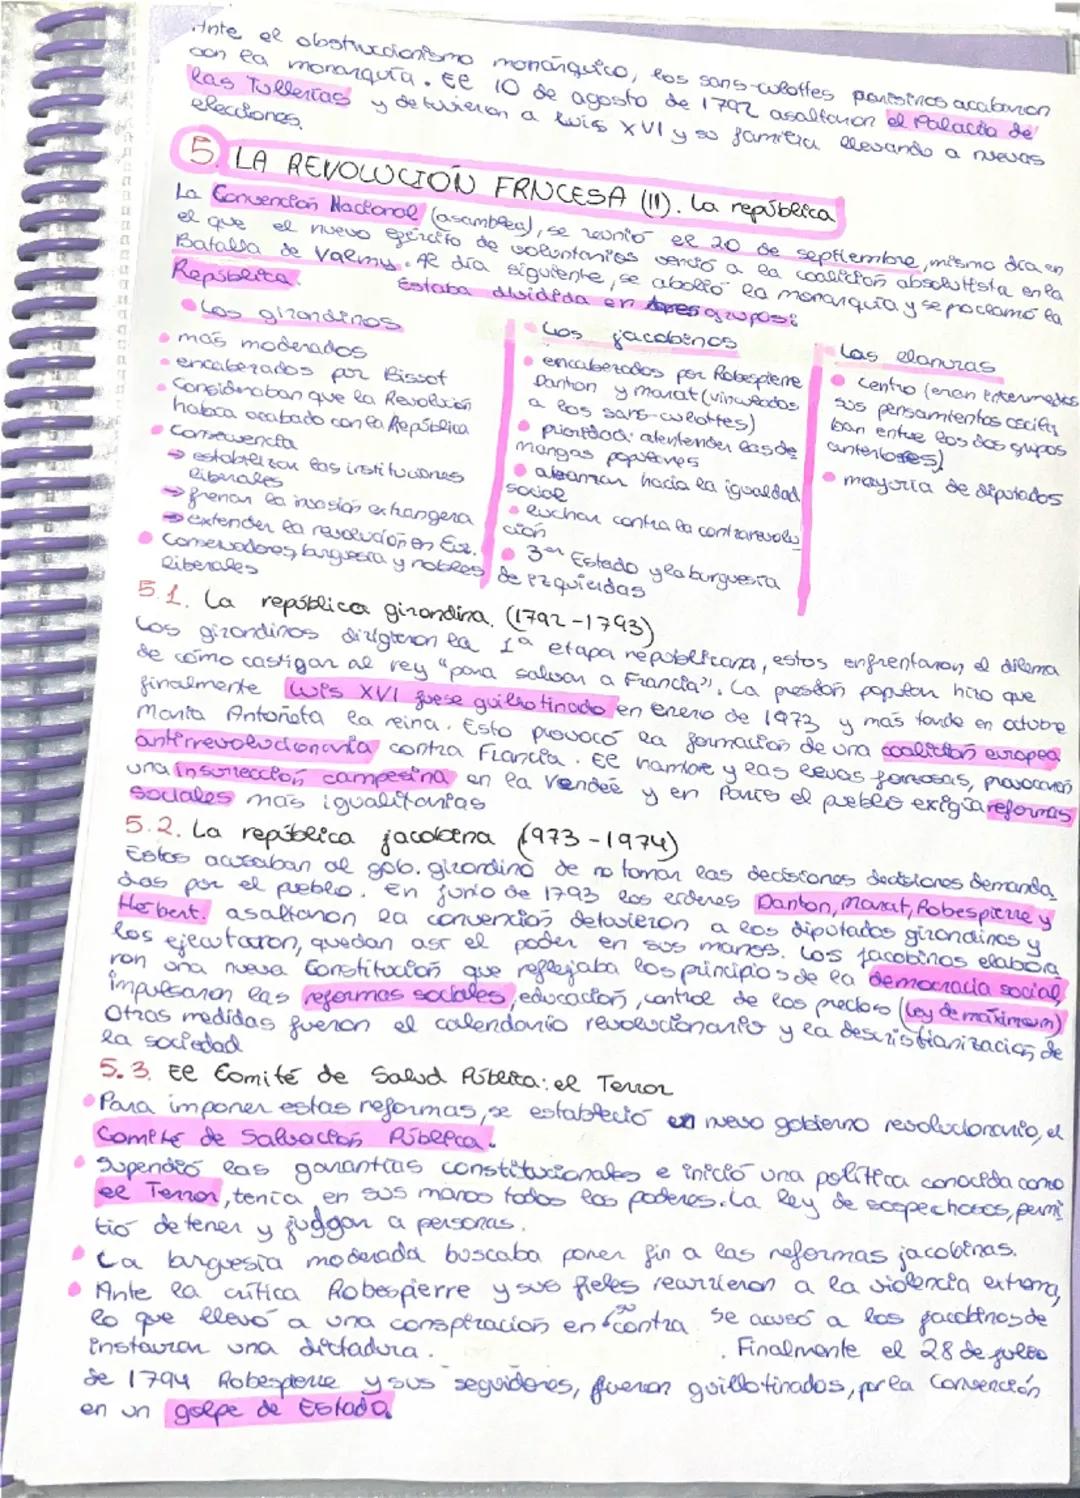 Ante el obstruccionismo monárquico, los sans-culottes parisinos acabaron
con la monarquía. El 10 de agosto de 1792 asaltaron el Palacio de
las Tullerías y detuvieron a Luis XVI y su familia llevando a nuevas
elecciones.
5. LA REVOLUCIÓN FRNCESA (II). La república
La Convención Nacional (asamblea), se reunió el 20 de septiembre, mismo día en
el que el nuevo ejército de voluntarios venció a la coalición absolutista en la
Batalla de Valmy. Al día siguiente, se abolió la monarquía y se proclamó la
República. Estaba dividida en tres grupos:
Los girondinos
más moderados
encabezados por Bissot
Consideraban que la Revolución
había acabado con la República
Consecuencia
→ establizar las instituciones
liberales
→ frenar la invasión extrangera
→ extender la revolución en Eur.
Conservadores, burguesía y nobles
liberales
Los jacobinos
encabezados por Robespierre
Danton y Marat (vinculados
a los sans-culottes)
prioridad: atentender las de
mangas populares
alcanzar hacia la igualdad
social
luchar contra la contrarevolu
ción
3er Estado y la burguesía
de izquierdas
Las llanuras
Centro (eran intermedios
sus pensamientos oscila
ban entre los dos grupos
anteriores)
mayoría de diputados
5.1. La república girondina. (1792-1793)
Los girondinos dirigieron la 1ª etapa republicana, estos enfrentaron el dilema
de cómo castigar al rey "para salvar a Francia". La presión popular hizo que
finalmente Luis XVI fuese guillotinado en enero de 1973 y más tarde en octubre
María Antoñeta la reina. Esto provocó la formación de una coalición europea
antirrevolucionaria contra Francia. El hambre y las levas forzosas, provocaron
una insurrección campesina en la Vendée y en París el pueblo exigía reformas
sociales más igualitarias
5.2. La república jacobina (1973-1974)
Estos acusaban al gob. girondino de no tomar las decisiones decisiones demanda
das por el pueblo. En junio de 1793 los líderes Danton, Marat, Robespierre y
Herbert. asaltaron la convención detuvieron a los diputados girondinos y
los ejecutaron, quedan así el poder en sus manos. Los jacobinos elabora
ron una nueva Constitución que reflejaba los principios de la democracia social,
impulsaron las reformas sociales, educación, control de los precios (ley de máximum)
Otras medidas fueron el calendario revolucionario y la descristianización de
la sociedad
5.3. El Comité de Salud Pública: el Terror
Para imponer estas reformas, se estableció un nuevo gobierno revolucionario, el
Comité de Salvación Pública.
Supendió las garantías constitucionales e inició una política conocida como
el Terror, tenía en sus manos todos los poderes. La ley de sospechosos, permi
tió detener y juzgar a personas.
La burguesía moderada buscaba poner fin a las reformas jacobinas.
Ante la crítica Robespierre y sus fieles recurrieron a la violencia extrema,
lo que llevó a una conspiración en su contra Se acusó a los jacobinos de
instaurar una dictadura. . Finalmente el 28 de julio
de 1794 Robespierre y sus seguidores, fueron guillotinados, por la Convención
en un golpe de Estado